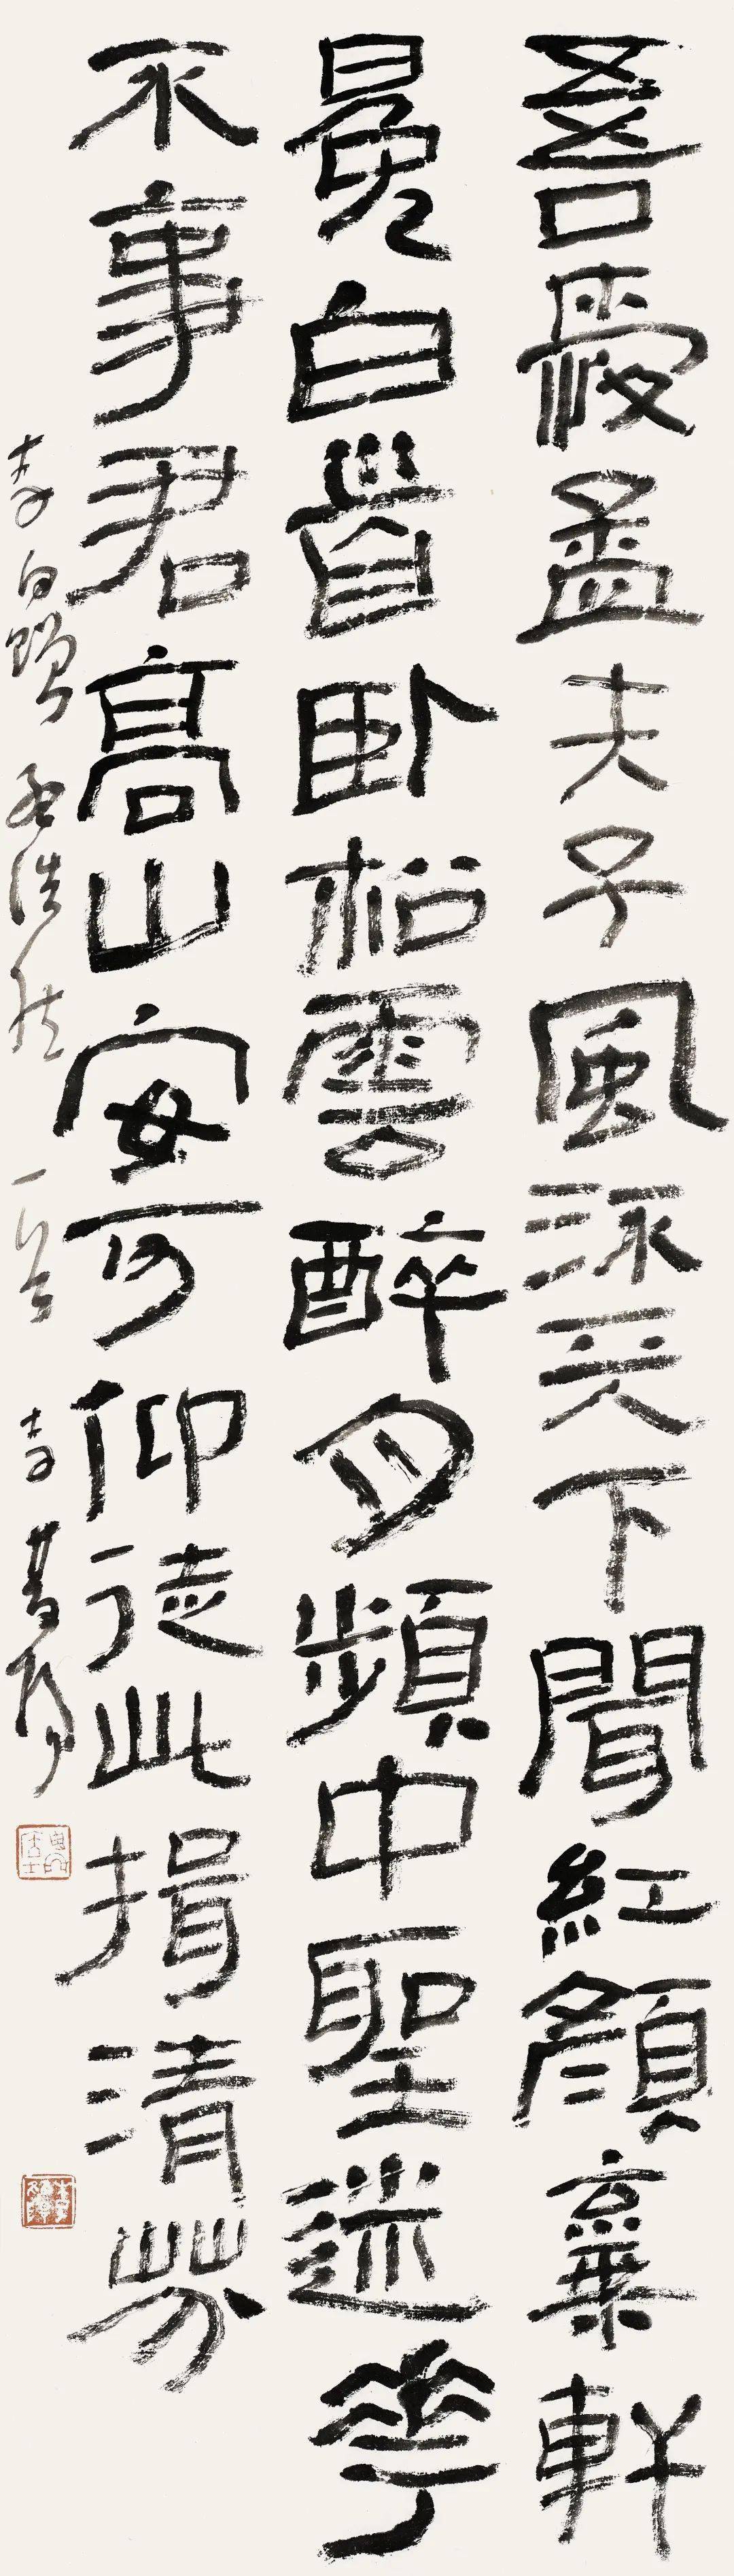 吾愛孟夫子風流天下聞紅顏棄軒
冕白首臥松雲醉月頻中聖迷花
不事君高山安可仰徒此揖清芬
李白贈孟浩然一首 李